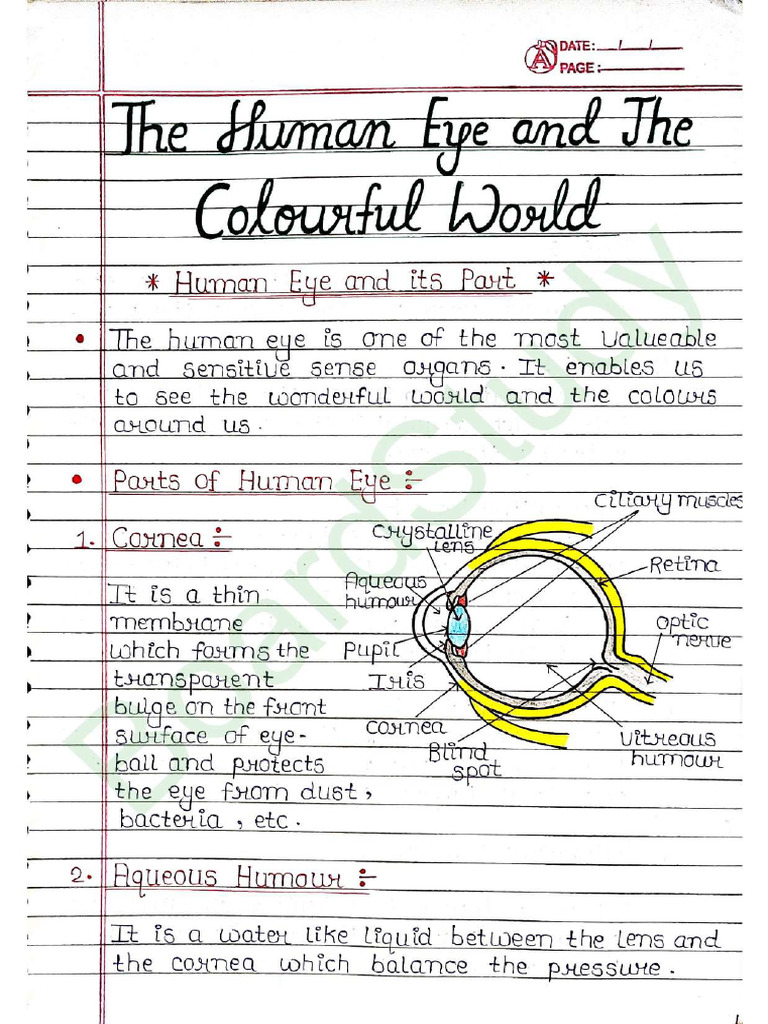 DATE: __/__/__
PAGE: ________
The Human Eye and The
Colourful World
* Human Eye and its Part *
• The human eye is one of the most valueable
and sensitive sense organs. It enables us
to see the wonderful world and the colours
around us.
• Parts of Human Eye :-
1. Cornea :-
It is a thin
membrane
which forms the
transparent
bulge on the front
surface of eye-
ball and protects
the eye from dust,
bacteria, etc.
Ciliary muscles
Crystalline
lens
Retina
Aqueous
humour
optic
nerve
Pupil
Iris
cornea
Blind
spot
Vitreous
humour
2. Aqueous Humour :-
It is a water like liquid between the lens and
the cornea which balance the pressure.
BoardStudy